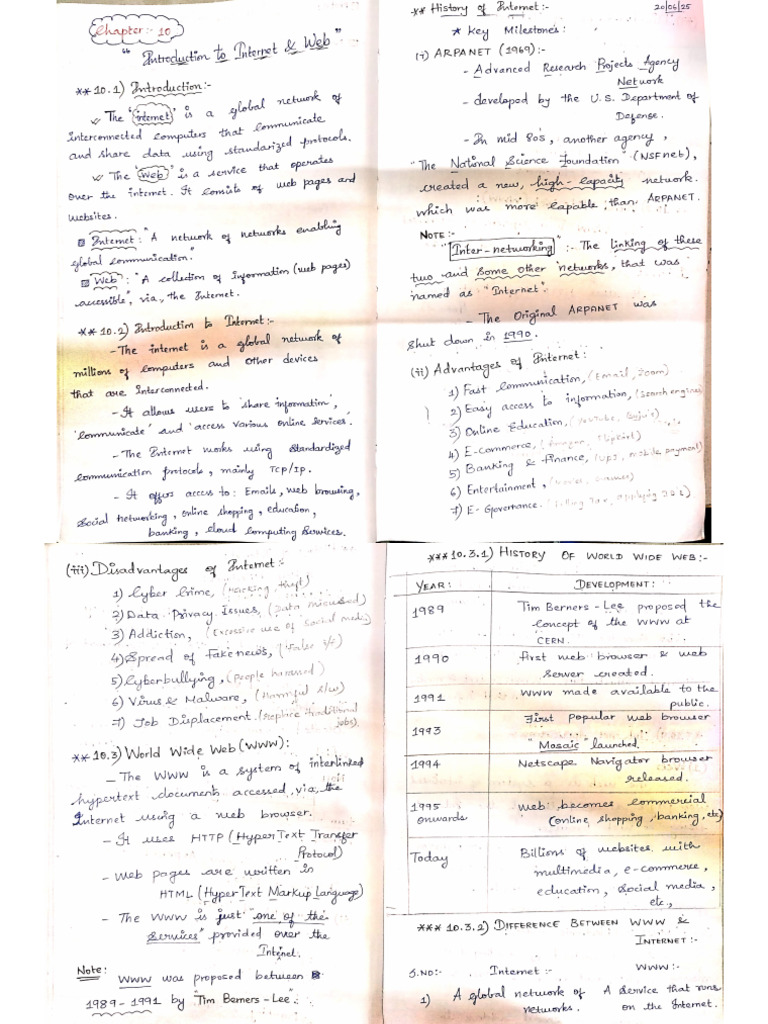 Chapter:- 10
"Introduction to Internet & Web"
** 10.1) Introduction:-
The "internet" is a global network of
interconnected computers that communicate
and share data using standarized protocols.
The "Web" is a service that operates
over the internet. It consists of web pages and
websites.
Internet: "A network of networks enabling
global communication.
Web: "A collection of information (web pages)
accessible", via, the Internet.
** 10.2) Introduction to Internet:-
- The internet is a global network of
millions of computers and other devices
that are Interconnected.
- It allows users to 'share information',
'communicate' and 'access various online services'.
- The Internet works using standardized
communication protocols, mainly TCP/IP.
- It offers access to: Emails, web browsing,
Social networking, online shopping, education,
banking, cloud computing services.
** History of Internet:-
20/06/25
* Key Milestones:
(i) ARPANET (1969):-
- Advanced Research Projects Agency
Network
- developed by the U.S. Department of
Defense.
- In mid 80's, another agency,
"The National Science Foundation" (NSFnet),
created a new, high-capacity network.
which was more capable than ARPANET.
NOTE:-
"Inter-networking" :- The linking of these
two and some other networks, that was
named as "Internet".
- The Original ARPANET was
Shut down in 1990.
(ii) Advantages of Internet:
1) Fast Communication, (Email, Zoom)
2) Easy access to information, (Search engines)
3) Online Education, (YouTube, Byju's)
4) E-commerce, (Amazon, Flipkart)
5) Banking & Finance, (UPI, mobile payment)
6) Entertainment, (games)
7) E-Governance. (Filling Tax, Applying
(iii) Disadvantages of Internet:
1) Cyber Crime, (Hacking theft)
2) Data Privacy Issues, (Data misused)
3) Addiction, (Excessive use of social media)
4) Spread of Fakenews, (False
5) Cyberbullying, (people harassed)
6) Virus & Malware, (Harmful s/w)
7) Job Displacement. (Replace traditional
jobs)
** 10.3) World Wide Web (WWW):
- The WWW is a system of interlinked
hypertext documents accessed, via, the
Internet using a web browser.
- It uses HTTP (HyperText Transfer
Protocol)
- Web pages are written in
HTML (HyperText Markup Language)
- The WWW is just "one of the
services" provided over the
Internet.
Note:
WWW was proposed between
1989-1991 by "Tim Berners-Lee".
*** 10.3.1) HISTORY OF WORLD WIDE WEB:-
YEAR: DEVELOPMENT:
1989 Tim Berners-Lee proposed the
concept of the WWW at
CERN.
1990 First web browser & web
server created.
1991 WWW made available to the
public.
1993 First Popular web browser
"Mosaic" launched.
1994 Netscape Navigator browser
released.
1995 onwards Web becomes commercial
(online shopping, banking, etc)
Today Billions of websites with
multimedia, e-commerce,
education, social media,
etc,
*** 10.3.2) DIFFERENCE BETWEEN WWW &
INTERNET:-
S.NO:- Internet:- WWW:-
1) A global network of A service that runs
networks. on the Internet.